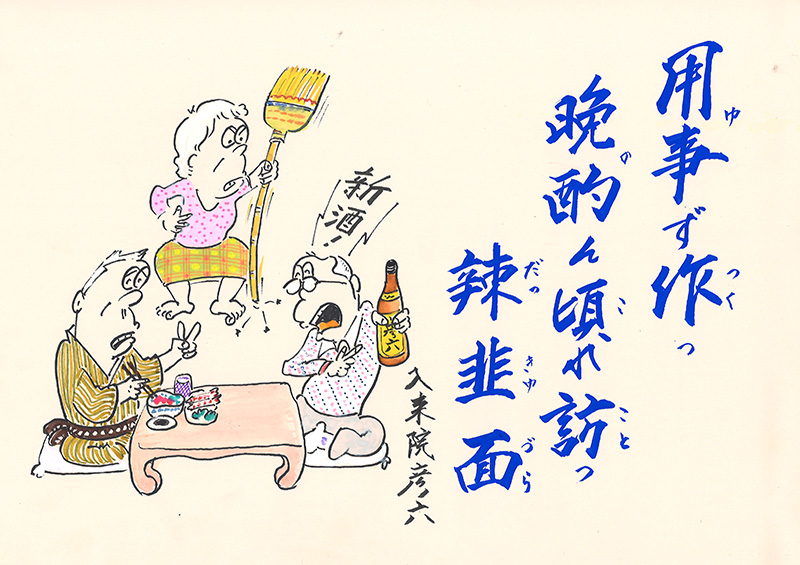 用事ず作っ
ゆ つく
晩酌ん頃れ訪っ
の こ こと
辣韮面
だっ きゆ づら
新酒!
彦六
入来院彦六